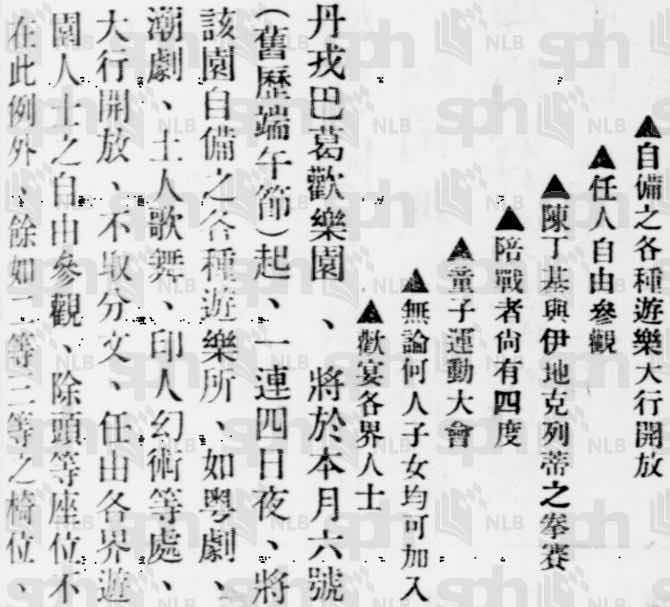 ▲自備之各種遊樂大行開放
▲任人自由參觀
▲陳丁基與伊地克列蒂之拳賽
▲陪戰者尙有四度
▲童子運動大會
▲無論何人子女均可加入
▲歡宴各界人士
丹戎巴葛歡樂園、將於本月六號
（舊歷端午節）起、一連四日夜、將
該園自備之各種遊樂所、如粵劇、
潮劇、土人歌舞、印人幻術等處、
大行開放、不取分文、任由各界遊
園人士之自由參觀、除頭等座位不
在此例外、餘如二等三等之椅位、
sph NLB